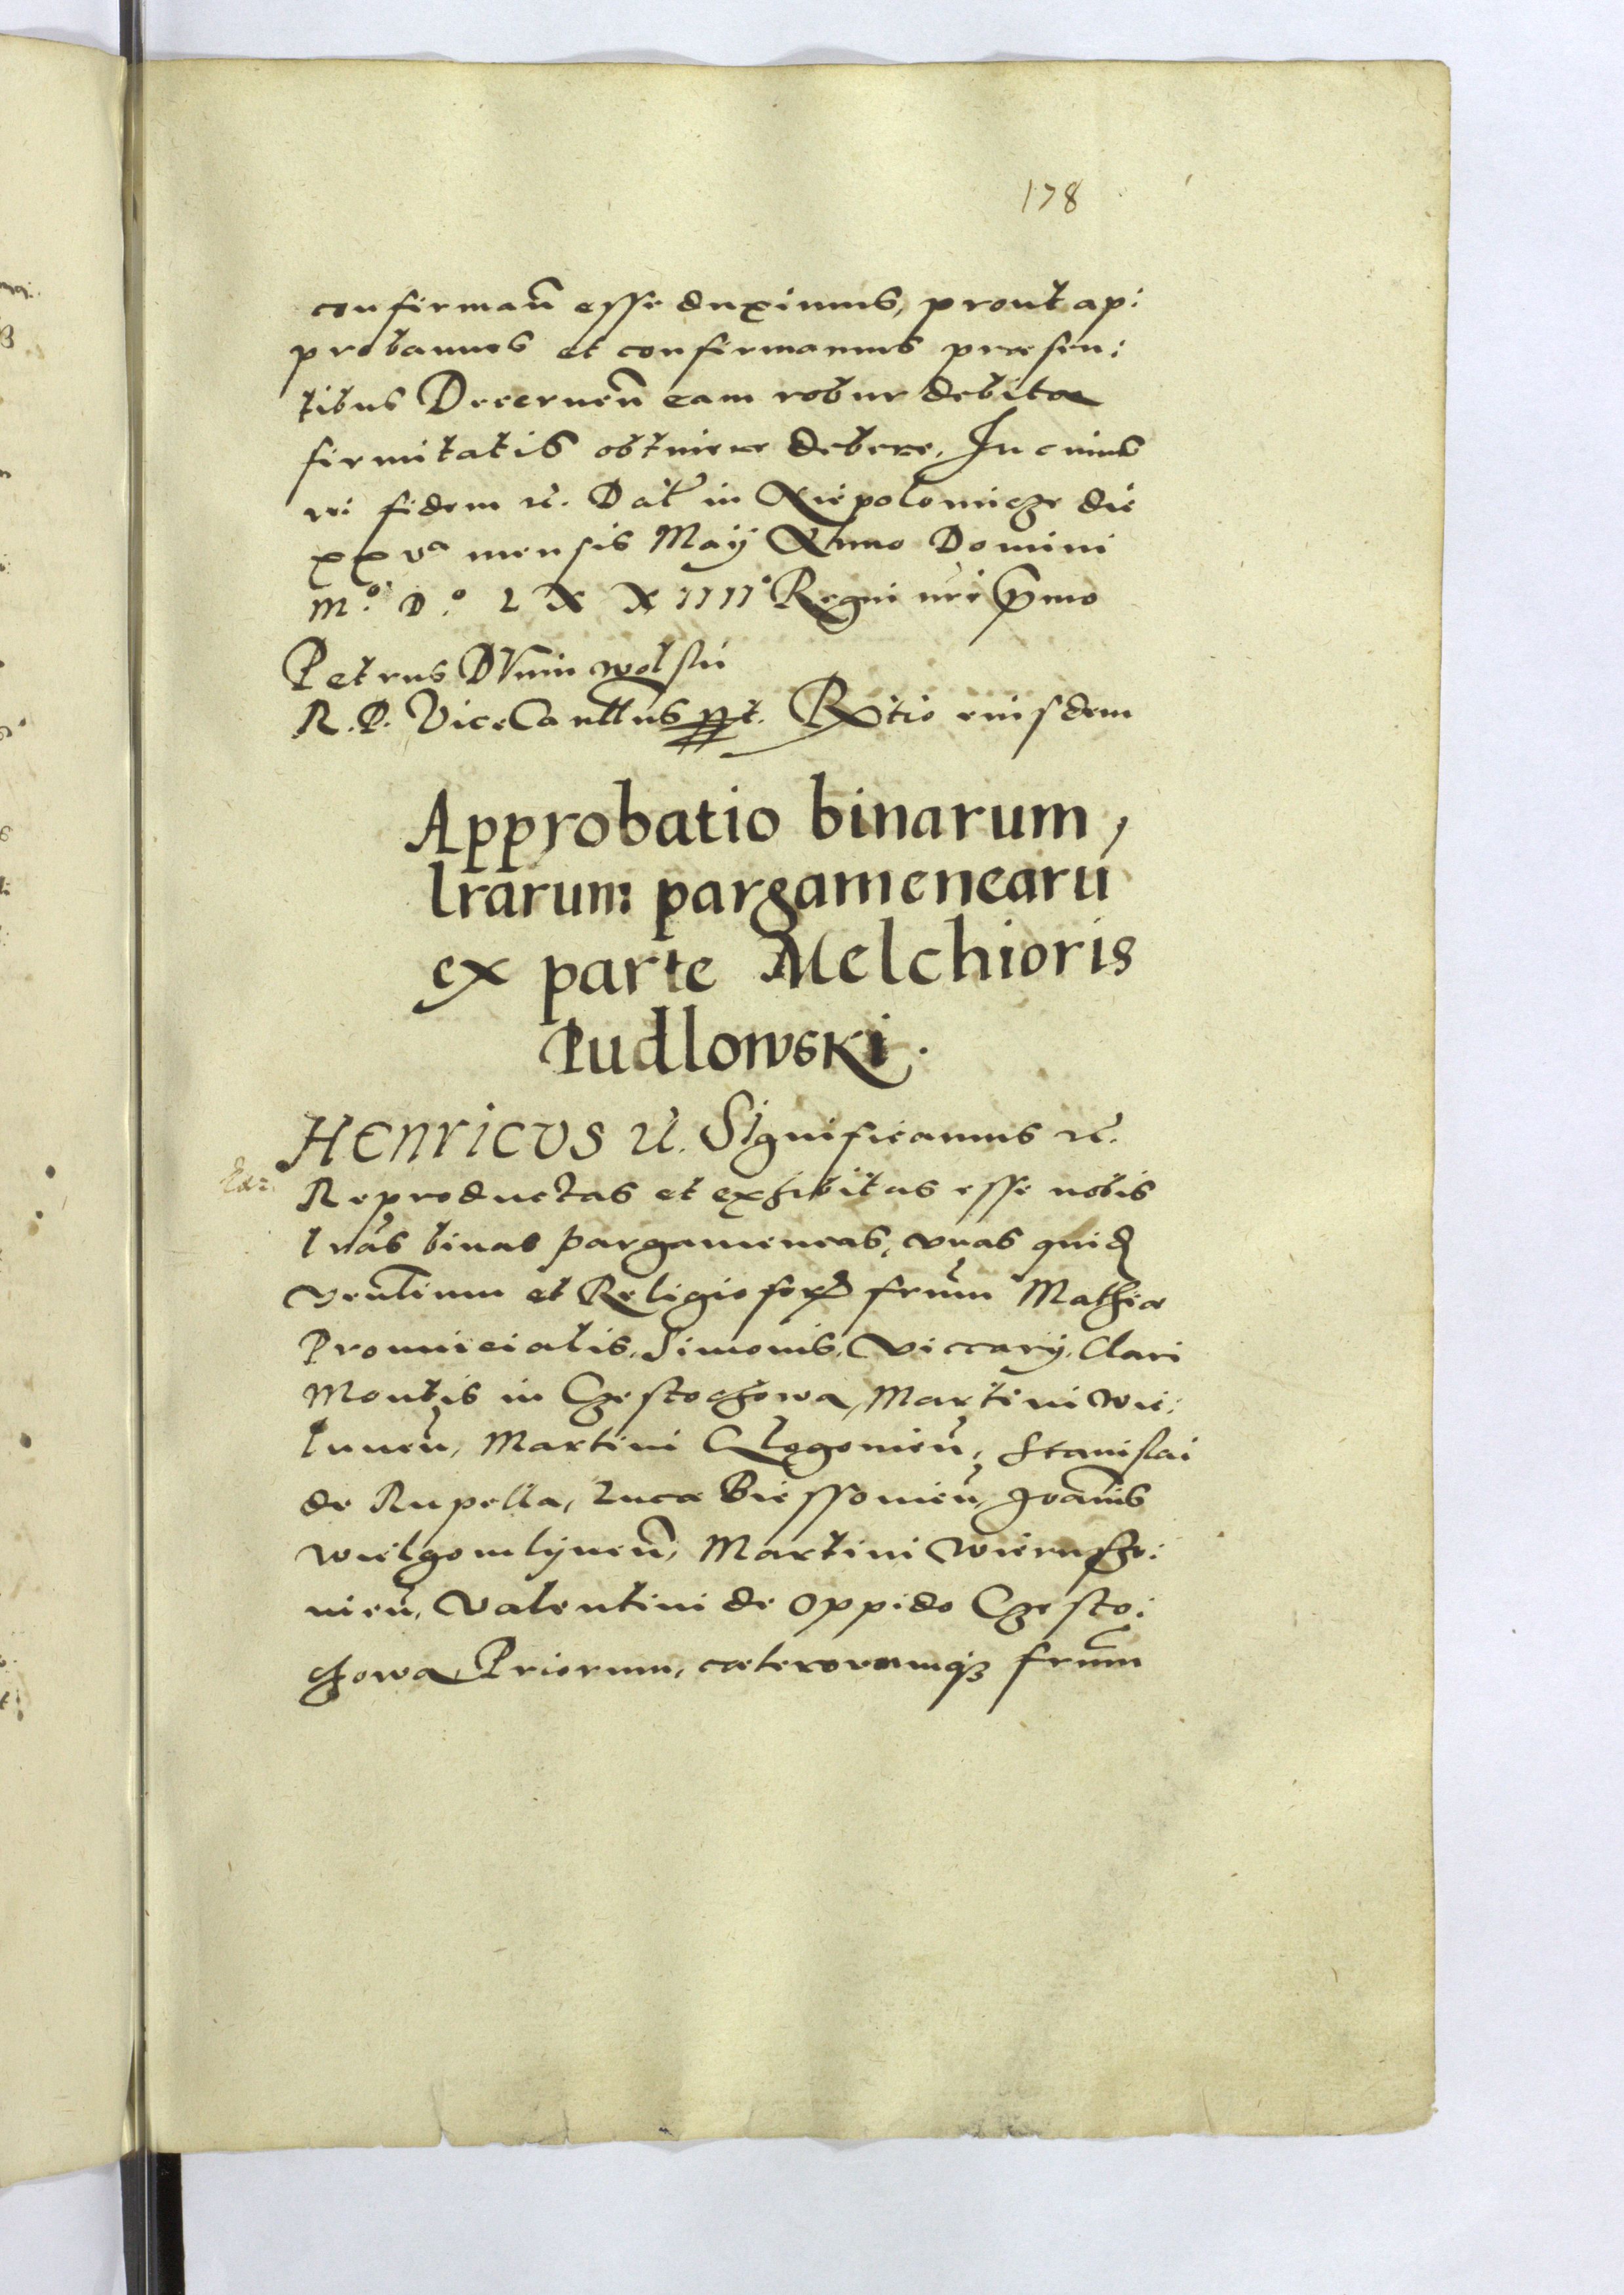 178
confirmañ esse duximus, prout ap:
probamus et confirmamus præsen:
tibus Decerneñ eam robur debitæ
firmitatis obtinere debere, In cuius
rei fidem etc. Dat̃ in Niepolomicze die
xxvᵃ mensis Maij Anno Domini
Mº. Dº. LXXIIIIº Regni nr̃i p̃mo
Petrus DVnin Wolskii
R. P. ViceCanll̃us sspt. Rl̃tio eiusdem
Approbatio binarum,
lrarum: pargamenearũ
ex parte Melchioris
Pudlowski.
HENRICVS etc. Significamus etc.
Reproductas et exhibitas esse nobis
lr̃as binas pargameneas, vnas quid
Veñlium et Religiosorꝝ frũm Mathiæ
Prouincialis, Simonis, Viccarij, Clari
Montis in Czestochowa, Martini Wie:
luneñ, Martini Glogowieñ, Stanislai
de Rupella, Lucæ Biessowieñ, Joãnis
Wielgomlyneñ, Martini Wierusze:
wieñ, Valentini de Oppido Czesto:
chowa Priorum, cæterorumqꝫ frũm